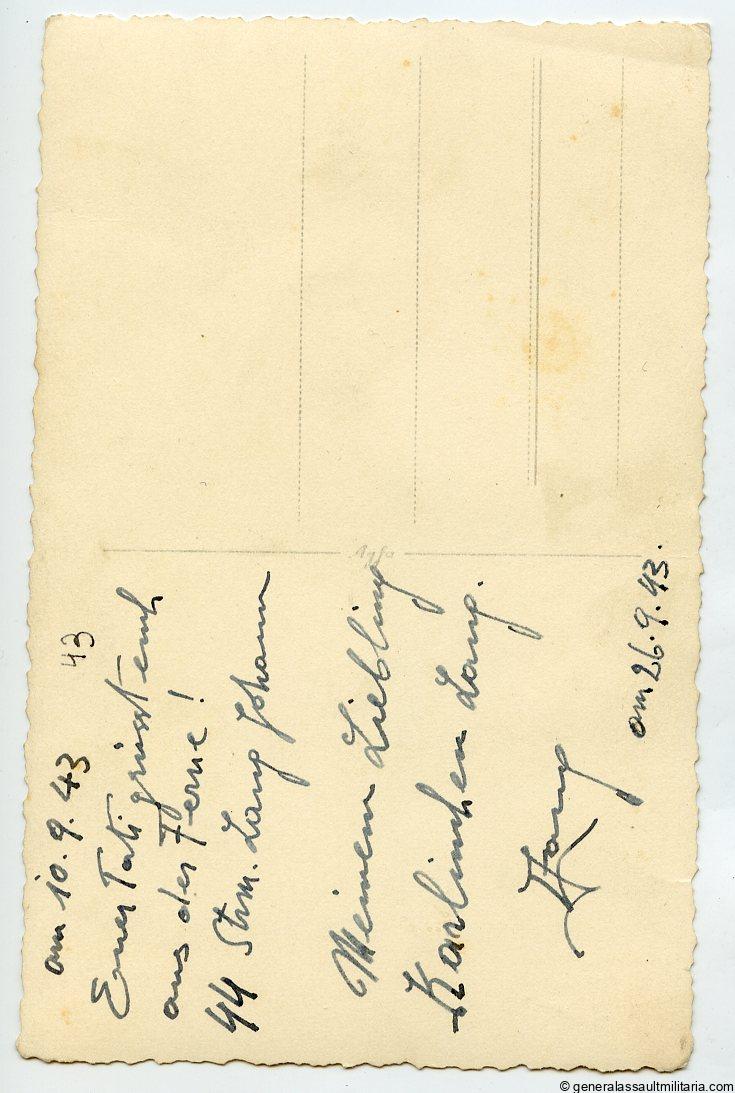 am 10.9.43
43
Euer Tati grüsst euch
aus der Ferne!
44 Strm. Lang Johann
Meinem Liebling
Karlinchen Lang.
Lang
am 26.9.43.
Agfa
© generalassaultmilitaria.com